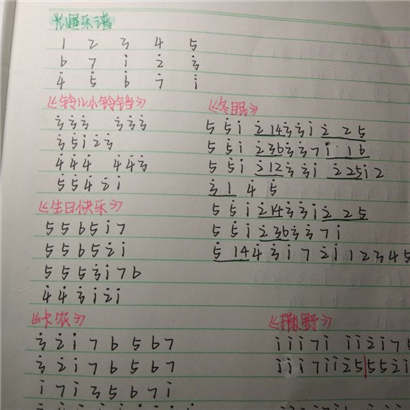 光遇乐谱
1 2 3 4 5
6 7 i 2̇ 3̇
4̇ 5̇ 6̇ 7̇ i
《铃儿小铃铛》
3̇ 3̇ 3̇ 3̇ 3̇ 3̇
3̇ 5̇ i 2̇ 3̇
4̇ 4̇ 4̇ 4̇ 4̇ 3̇
5̇ 5̇ 4̇ 2̇ i
《生日快乐》
5 5 6 5 i 7
5 5 6 5 2̇ i
5 5 5̇ 3̇ i 7 6
4̇ 4̇ 3̇ i 2̇ i
《卡农》
3̇ 2̇ i 7 6 5 6 7
3̇ 2̇ i 7 6 5 6 7
i 7 i 3 5 6 7 i
《冬眠》
5 5 i 2̇ 1 4̇ 3̇ 3̇ i 2̇ 2̇ 5
5 5 i 2̇ 3 6 3̇ 3̇ 7 i 1 6
5 5 i 2̇ i 2̇ 2̇ 5 i 2
3̇ 1 4 5
5 5 i 2̇ 1 4̇ 3̇ 3̇ i 2̇ 2̇ 5
5 5 i 2̇ 3 6 3̇ 3̇ 7 i
5 1 4 4̇ 3̇ i 7 2̇ i 1 2 3 4 5
i i i 7 i i i 2̇ i 7 5
i i i 7 i i 2̇ 5 5 5 2̇ i